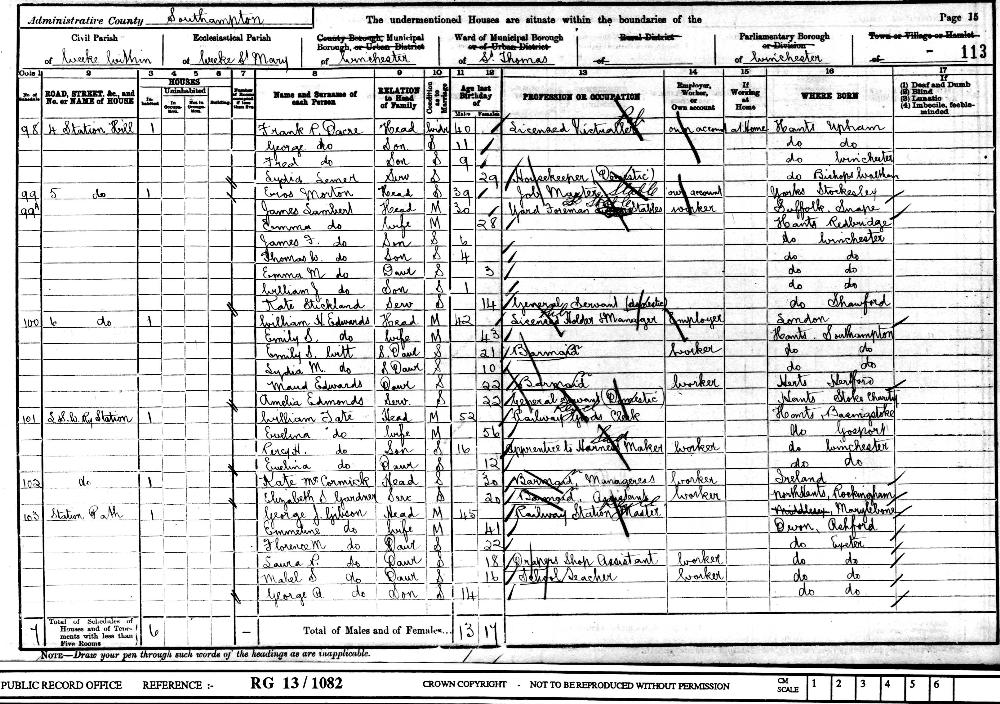 Administrative County Southampton
The undermentioned Houses are situate within the boundaries of the
Page 15
Civil Parish
of Weeke Within
Ecclesiastical Parish
of Weeke St Mary
County Borough, Municipal Borough, or Urban District
of Winchester
Ward of Municipal Borough or of Urban District
of St Thomas
Rural District
of
Parliamentary Borough or Division
of Winchester
Town or Village or Hamlet
of -
113
Cols 1 2 3 4 5 6 7 8 9 10 11 12 13 14 15 16 17
No. of Schedule
ROAD, STREET, &c., and No. or NAME of HOUSE
HOUSES
Inhabited
Uninhabited
In Occupation
Not in Occupation
Building
Name and Surname of each Person
RELATION to Head of Family
Condition as to Marriage
Age last Birthday of
Males Females
PROFESSION OR OCCUPATION
Employer, Worker, or Own account
If Working at Home
WHERE BORN
If (1) Deaf and Dumb (2) Blind (3) Lunatic (4) Imbecile, feeble-minded
98 4 Station Hill 1 Frank P. Dacre Head 40 Licensed Victualler own account at Home Hants Upham
George do Son S 11 do do
Fred do Son S 9 do Winchester
Lydia Serv S 29 Housekeeper (Domestic) do Bishops Waltham
99 5 do 1 Morton Head S 39 Job Master Stable own account Yorks Stockesley
99A James Lambert Head M 30 Yard Foreman Stables worker Suffolk, Snape
Emma do Wife M 28 Hants Redbridge
James F. do Son S 6 do Winchester
Thomas W. do Son S 4 do do
Emma M do Daur S 3 do do
William J do Son S 1 do do
Kate Stickland Serv S 14 General Servant (domestic) do Shawford
100 6 do 1 William H Edwards Head M 42 Licensed Holder & Manager Employer London
Emily S. do Wife M 43 Hants Southampton
Emily S. Witt S. Daur S 21 Barmaid Worker do do
Lydia M. do S Daur S 10 do do
Maud Edwards Daur S 22 Barmaid Worker Herts Hertford
Amelia Edmonds Serv. S 22 General Servant (Domestic) Hants Stoke Charity
101 L.S.W. Ry Station 1 William Tate Head M 52 Railway Goods Clerk Hants, Basingstoke
Ewelina do Wife M 56 do Gosport
Percy H. do Son S 16 Apprentice to Harness Maker Worker do Winchester
Ewelina do Daur S 12 do do
102 do 1 Kate McCormick Head S 30 Barmaid, Manageress Worker Ireland
Elizabeth S Gardner Serv S 20 Barmaid, Assistant Worker Northants, Rockingham
103 Station Path 1 George J. Gibson Head M 45 Railway Station Master Middlesex, Marylebone
Emmeline do Wife M 41 Devon, Ashford
Florence M do Daur S 22 do Exeter
Laura P. do Daur S 18 Drapers Shop Assistant Worker do do
Mabel S do Daur S 16 School Teacher Worker do do
George A do Son S 14 do do
7 Total of Schedules of Houses and of Tenements with less than Five Rooms 6 - Total of Males and of Females... 13 17
NOTE—Draw your pen through such words of the headings as are inapplicable.
PUBLIC RECORD OFFICE REFERENCE :- RG 13 / 1082 CROWN COPYRIGHT - NOT TO BE REPRODUCED WITHOUT PERMISSION CM SCALE 1 2 3 4 5 6